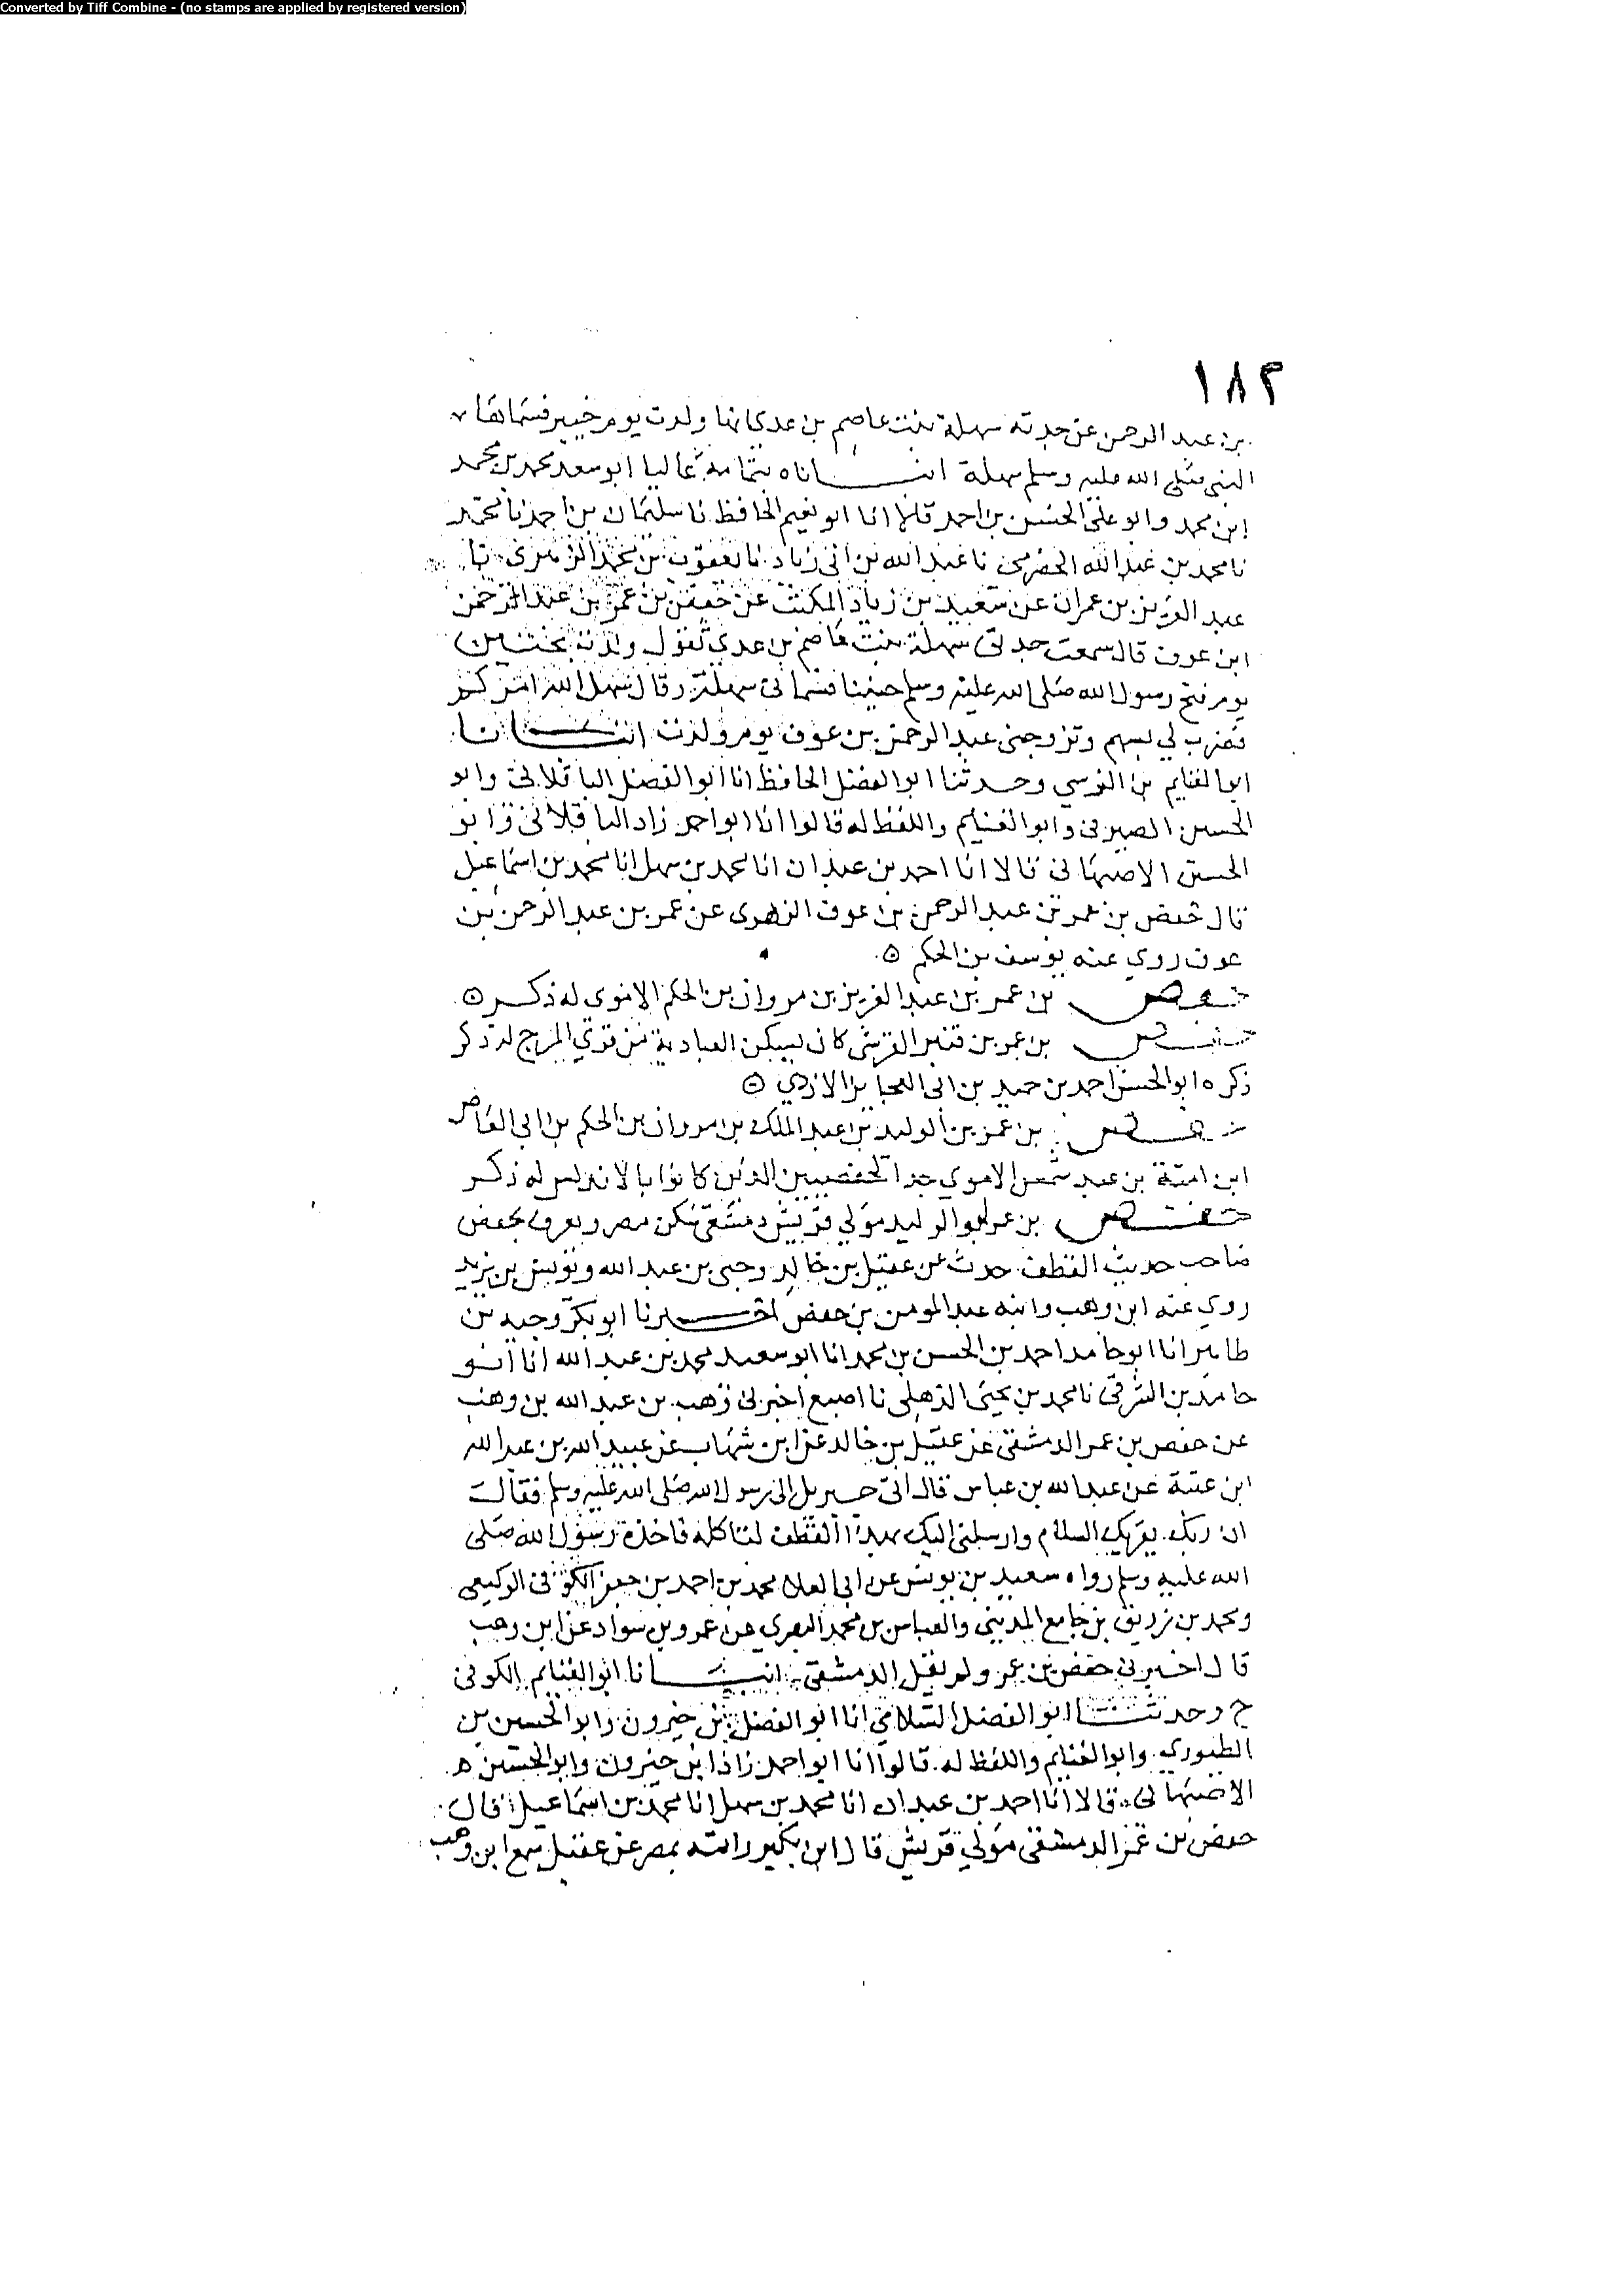 Converted by Tiff Combine - (no stamps are applied by registered version)
١٨٢
بن عبد الرحمن عن جدته سهلة بنت عاصم بن عدي انها ولدت يوم خيبر فسماها
النبي صلى الله عليه وسلم سهلة انبـــاناه بتمامه عاليا ابو سعد محمد بن محمد
ابن محمد وابو علي الحسن بن احمد قالا انا ابو نعيم الحافظ نا سليمان بن احمد نا محمد
نا محمد بن عبد الله الحضرمي نا عبد الله بن ابي زياد نا يعقوب بن محمد الزهري نا
عبد العزيز بن عمران عن سعيد بن زياد المكتب عن حفص بن عمر بن عبد الرحمن
ابن عوف قال سمعت جدتي سهلة بنت عاصم بن عدي تقول ولدت بحنين
يوم فتح رسول الله صلى الله عليه وسلم حنينا فسماني سهلة وقال سهل الله امركم
فضرب لي بسهم وتزوجني عبد الرحمن بن عوف يوم ولدت انبـــانا
ابو الغنايم بن النرسي وحدثنا ابو الفضل الحافظ انا ابو الفضل الباقلاني وابو
الحسين الصيرفي وابو الغنايم واللفظ له قالوا انا ابو احمد زاد الباقلاني وابو
الحسين الاصبهاني قالا انا احمد بن عبدان انا محمد بن سهل انا محمد بن اسماعيل
قال حفص بن عمر بن عبد الرحمن بن عوف الزهري عن عمر بن عبد الرحمن بن
عوف روي عنه يوسف بن الحكم ٥
حفص بن عمر بن عبد العزيز بن مروان بن الحكم الاموي له ذكر ٥
حفص بن عمر بن قنبر القرشي كان يسكن العبادية من قري المرج له ذكر
ذكره ابو الحسن احمد بن حميد بن ابي العجايز الازدي ٥
حفص بن عمر بن الوليد بن عبد الملك بن مروان بن الحكم بن ابي العاص
ابن امية بن عبد شمس الاموي جد الحفصيين الذين كانوا بالاندلس له ذكر
حفص بن عمر ابو الوليد مولي قريش دمشقي سكن مصر ويعرف بحفص
صاحب حديث القطف حدث عن عقيل بن خالد وحيي بن عبد الله ويونس بن يزيد
روي عنه ابن وهب وابنه عبد المومن بن حفص اخبرنا ابو بكر وجيه بن
طاهر انا ابو حامد احمد بن الحسن بن محمد انا ابو سعيد محمد بن عبد الله انا ابو
حامد بن الشرقي نا محمد بن يحيى الذهلي نا اصبغ اخبرني وهب بن عبد الله بن وهب
عن حفص بن عمر الدمشقي عن عقيل بن خالد عن ابن شهاب عن عبيد الله بن عبد الله
ابن عتبة عن عبد الله بن عباس قال اتي جبريل الى رسول الله صلى الله عليه وسلم فقال
ان ربك يقريك السلام وارسلني اليك بهذا القطف لتاكله فاخذه رسول الله صلى
الله عليه وسلم رواه سعيد بن يونس عن ابي العلا محمد بن احمد بن جعفر الكوفي الوكيعي
ومحمد بن زريق بن جامع المديني والعباس بن محمد البصري عن عمرو بن سواد عن ابن وهب
قال اخبرني حفص بن عمر ولم يقل الدمشقي انبـــانا ابو الغنايم الكوفي
ح وحدثنا ابو الفضل السلامي انا ابو الفضل بن خيرون وابو الحسين بن
الطيوري وابو الغنايم واللفظ له قالوا انا ابو احمد زاد ابن خيرون وابو الحسين
الاصبهاني قالا انا احمد بن عبدان انا محمد بن سهل انا محمد بن اسماعيل قال
حفص بن عمر الدمشقي مولي قريش قال ابن بكير رايته بمصر عن عقيل سمع ابن وهب